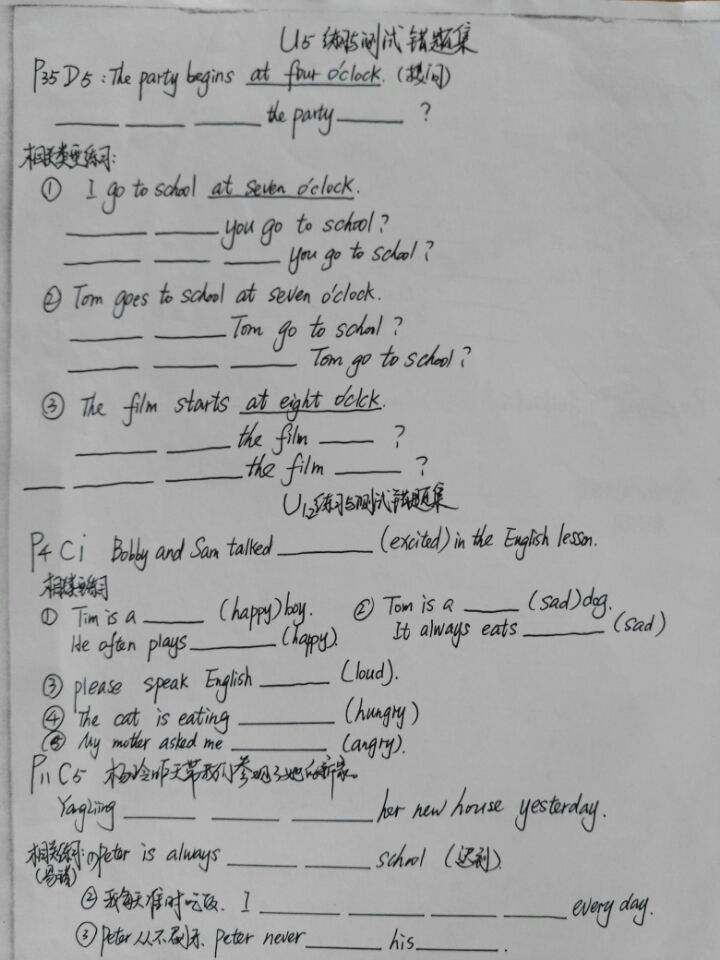 U5 练习与测试错题集
P35 D5: The party begins at four o'clock. (提问)
____ ____ ____ the party ____ ?
相关类型练习:
① I go to school at seven o'clock.
____ ____ you go to school?
____ ____ ____ you go to school?
② Tom goes to school at seven o'clock.
____ ____ Tom go to school?
____ ____ ____ Tom go to school?
③ The film starts at eight o'clck.
____ ____ the film ____ ?
____ ____ ____ the film ____ ?
U12练习与测试错题集
P4 Ci Bobby and Sam talked ____ (excited) in the English lesson.
相关类型练习
① Tim is a ____ (happy) boy. ② Tom is a ____ (sad) dog.
He often plays ____ (happy). It always eats ____ (sad)
③ please speak English ____ (loud).
④ The cat is eating ____ (hungry)
⑤ My mother asked me ____ (angry).
P11 C5 杨玲昨天带我们参观了她的新家。
YangLing ____ ____ ____ her new house yesterday.
相关练习: ① Peter is always ____ ____ ____ school (迟到).
(易错)
② 我每天准时吃饭. I ____ ____ ____ ____ every day.
③ Peter从不刷牙. Peter never ____ his ____.